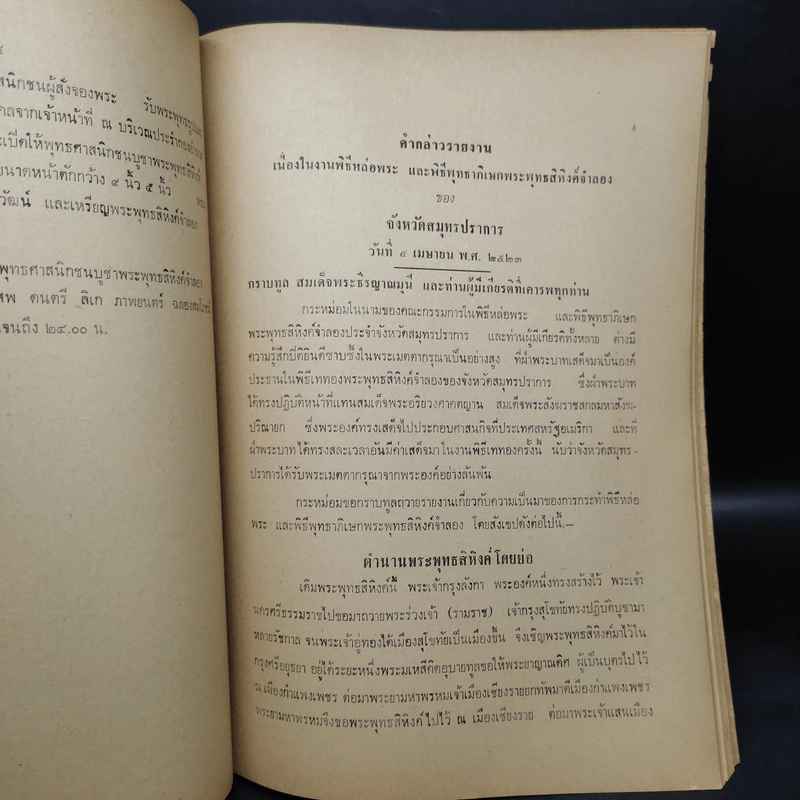 สนิกชนผู้สั่งจองพระ รับพระพุทธรูป
กลจากเจ้าหน้าที่ ณ บริเวณประรำกองอำนวย
ะเปิดให้พุทธศาสนิกชนบูชาพระพุทธสิหิงค์
ขนาดหน้าตักกว้าง ๙ นิ้ว ๕ นิ้ว พระ
วัฒน์ และเหรียญพระพุทธสิหิงค์จำลอง
พุทธศาสนิกชนบูชาพระพุทธสิหิงค์จำลอง
สพ ดนตรี ลิเก ภาพยนตร์ ฉลองสมโภชน์
จนถึง ๒๔.๐๐ น.
คำกล่าวรายงาน
เนื่องในงานพิธีหล่อพระ และพิธีพุทธาภิเษกพระพุทธสิหิงค์จำลอง
ของ
จังหวัดสมุทรปราการ
วันที่ ๘ เมษายน พ.ศ. ๒๕๒๓
กราบทูล สมเด็จพระธีรญาณมุนี และท่านผู้มีเกียรติที่เคารพทุกท่าน
กระหม่อมในนามของคณะกรรมการในพิธีหล่อพระ และพิธีพุทธาภิเษก
พระพุทธสิหิงค์จำลองประจำจังหวัดสมุทรปราการ และท่านผู้มีเกียรติทั้งหลาย ต่างมี
ความรู้สึกปีติยินดีซาบซึ้งในพระเมตตากรุณาเป็นอย่างสูง ที่ฝ่าพระบาทเสด็จมาเป็นองค์
ประธานในพิธีเททองพระพุทธสิหิงค์จำลองของจังหวัดสมุทรปราการ ซึ่งฝ่าพระบาท
ได้ทรงปฏิบัติหน้าที่แทนสมเด็จพระอริยวงศาคตญาน สมเด็จพระสังฆราชสกลมหาสังฆ-
ปริณายก ซึ่งพระองค์ทรงเสด็จไปประกอบศาสนกิจที่ประเทศสหรัฐอเมริกา และที่
ฝ่าพระบาทได้ทรงสละเวลาอันมีค่าเสด็จมาในงานพิธีเททองครั้งนี้ นับว่าจังหวัดสมุทร-
ปราการได้รับพระเมตตากรุณาจากพระองค์อย่างล้นพ้น
กระหม่อมขอกราบทูลถวายรายงานเกี่ยวกับความเป็นมาของการกระทำพิธีหล่อ
พระ และพิธีพุทธาภิเษกพระพุทธสิหิงค์จำลอง โดยสังเขปดังต่อไปนี้.–
ตำนานพระพุทธสิหิงค์โดยย่อ
เดิมพระพุทธสิหิงค์นี้ พระเจ้ากรุงลังกา พระองค์หนึ่งทรงสร้างไว้ พระเจ้า
นครศรีธรรมราชไปขอมาถวายพระร่วงเจ้า (รามราช) เจ้ากรุงสุโขทัยทรงปฏิบัติบูชามา
หลายรัชกาล จนพระเจ้าอู่ทองได้เมืองสุโขทัยเป็นเมืองขึ้น จึงเชิญพระพุทธสิหิงค์มาไว้ใน
กรุงศรีอยุธยา อยู่ได้ระยะหนึ่งพระมเหสีคิดอุบายทูลขอให้พระยาญาณดิศ ผู้เป็นบุตรไปไว้
ณ เมืองกำแพงเพชร ต่อมาพระยามหาพรหมเจ้าเมืองเชียงรายยกทัพมาตีเมืองกำแพงเพชร
พระยามหาพรหมจึงขอพระพุทธสิหิงค์ไปไว้ ณ เมืองเชียงราย ต่อมาพระเจ้าแสนเมือง